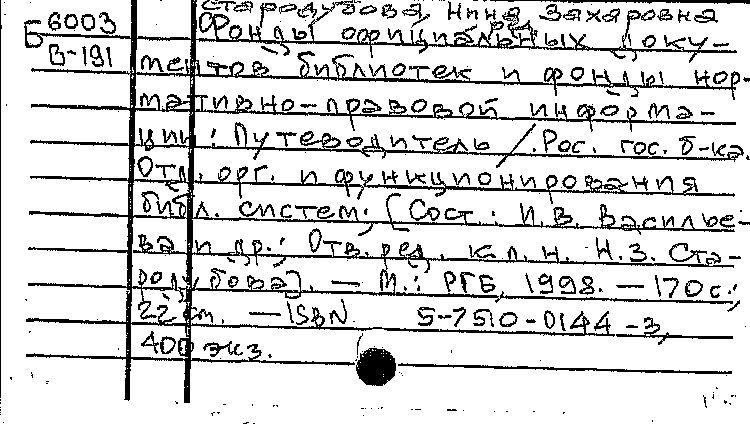 Стародубова, Нина Захаровна ред.
Б 6003
В-191
Фонды официальных доку-
ментов библиотек и фонды нор-
мативно-правовой информа-
ции: Путеводитель / Рос. гос. б-ка.
Отд. орг. и функционирования
библ. систем; [Сост.: И.В. Василье-
ва и др.; Отв. ред. к.п.н. Н.З. Ста-
родубова]. — М.: РГБ, 1998. — 170 с.;
22 см. — ISBN 5-7510-0144-3,
400 экз.